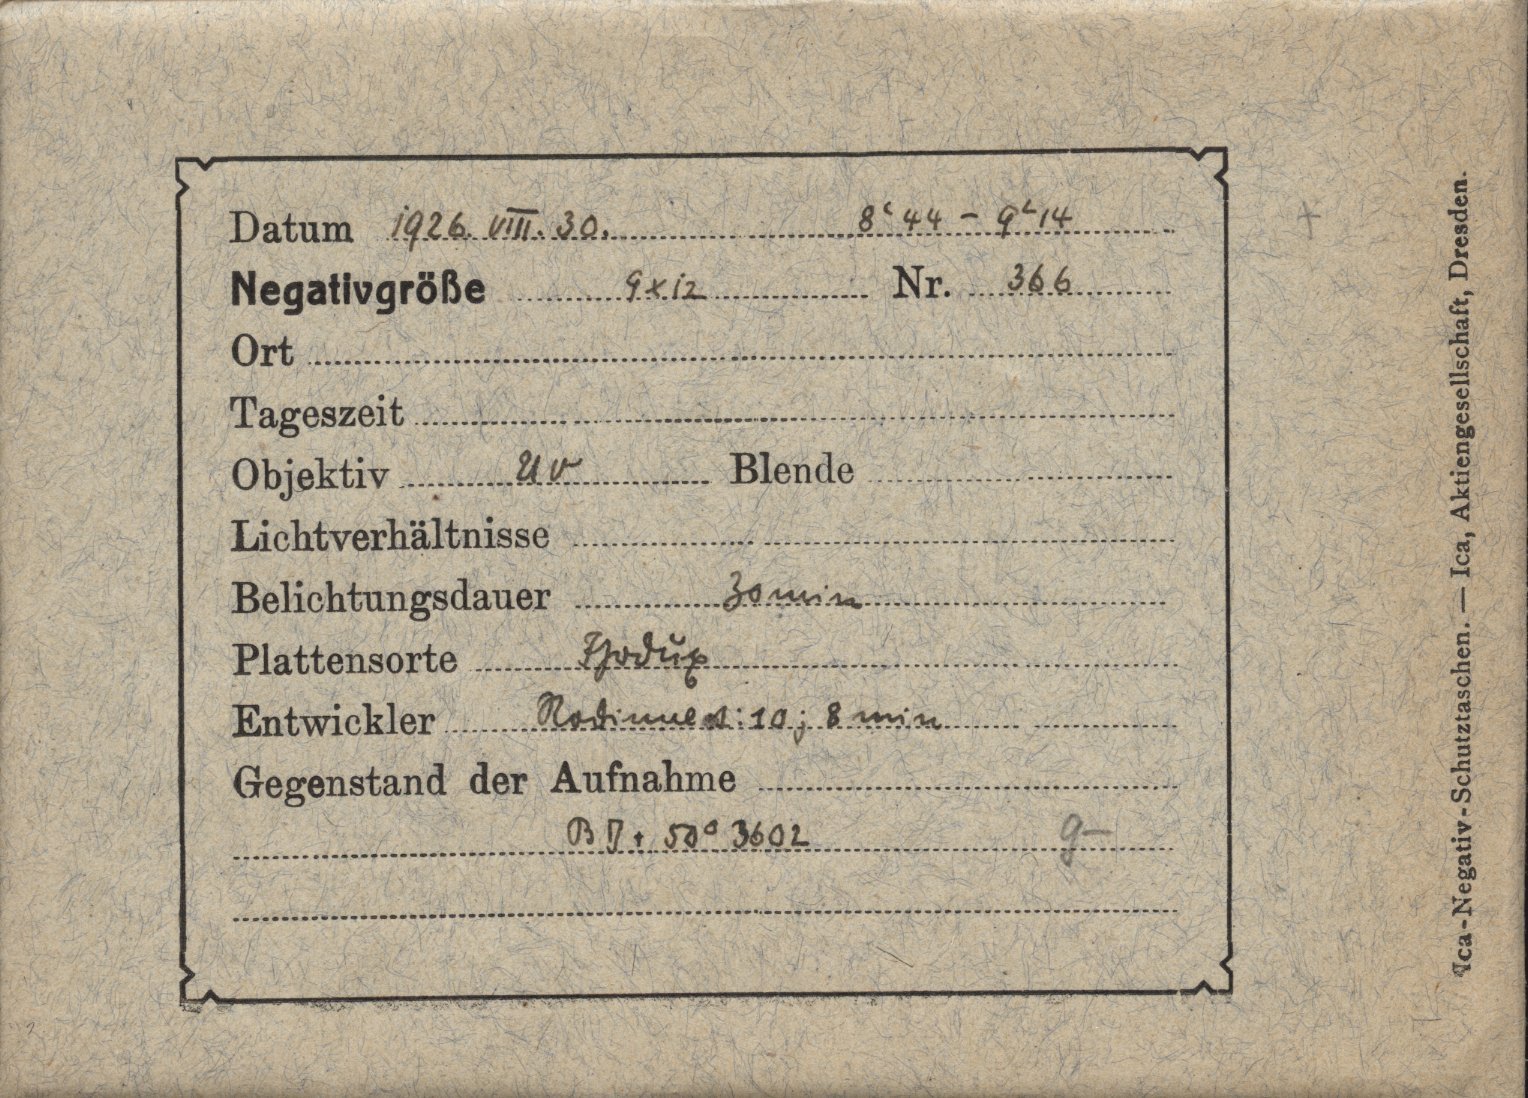 Datum 1926. VIII. 30. 8ʰ 44 – 9ʰ 14
Negativgröße 9x12 Nr. 366
Ort
Tageszeit
Objektiv UV Blende
Lichtverhältnisse
Belichtungsdauer 30 min
Plattensorte
Entwickler Rodinal 1:10; 8 min
Gegenstand der Aufnahme
BD + 50° 3602 g–
Ica-Negativ-Schutztaschen. — Ica, Aktiengesellschaft, Dresden.